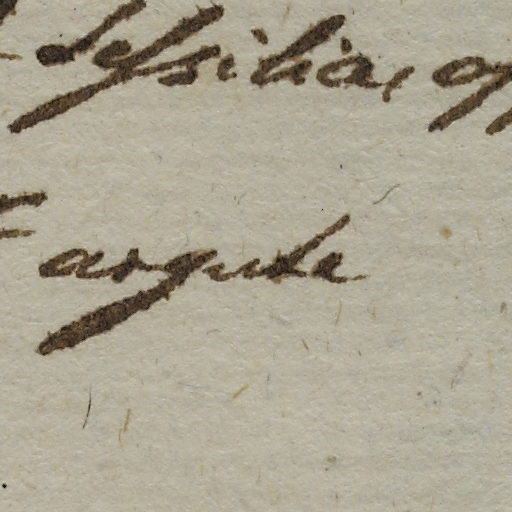 sessilia, op
arguta